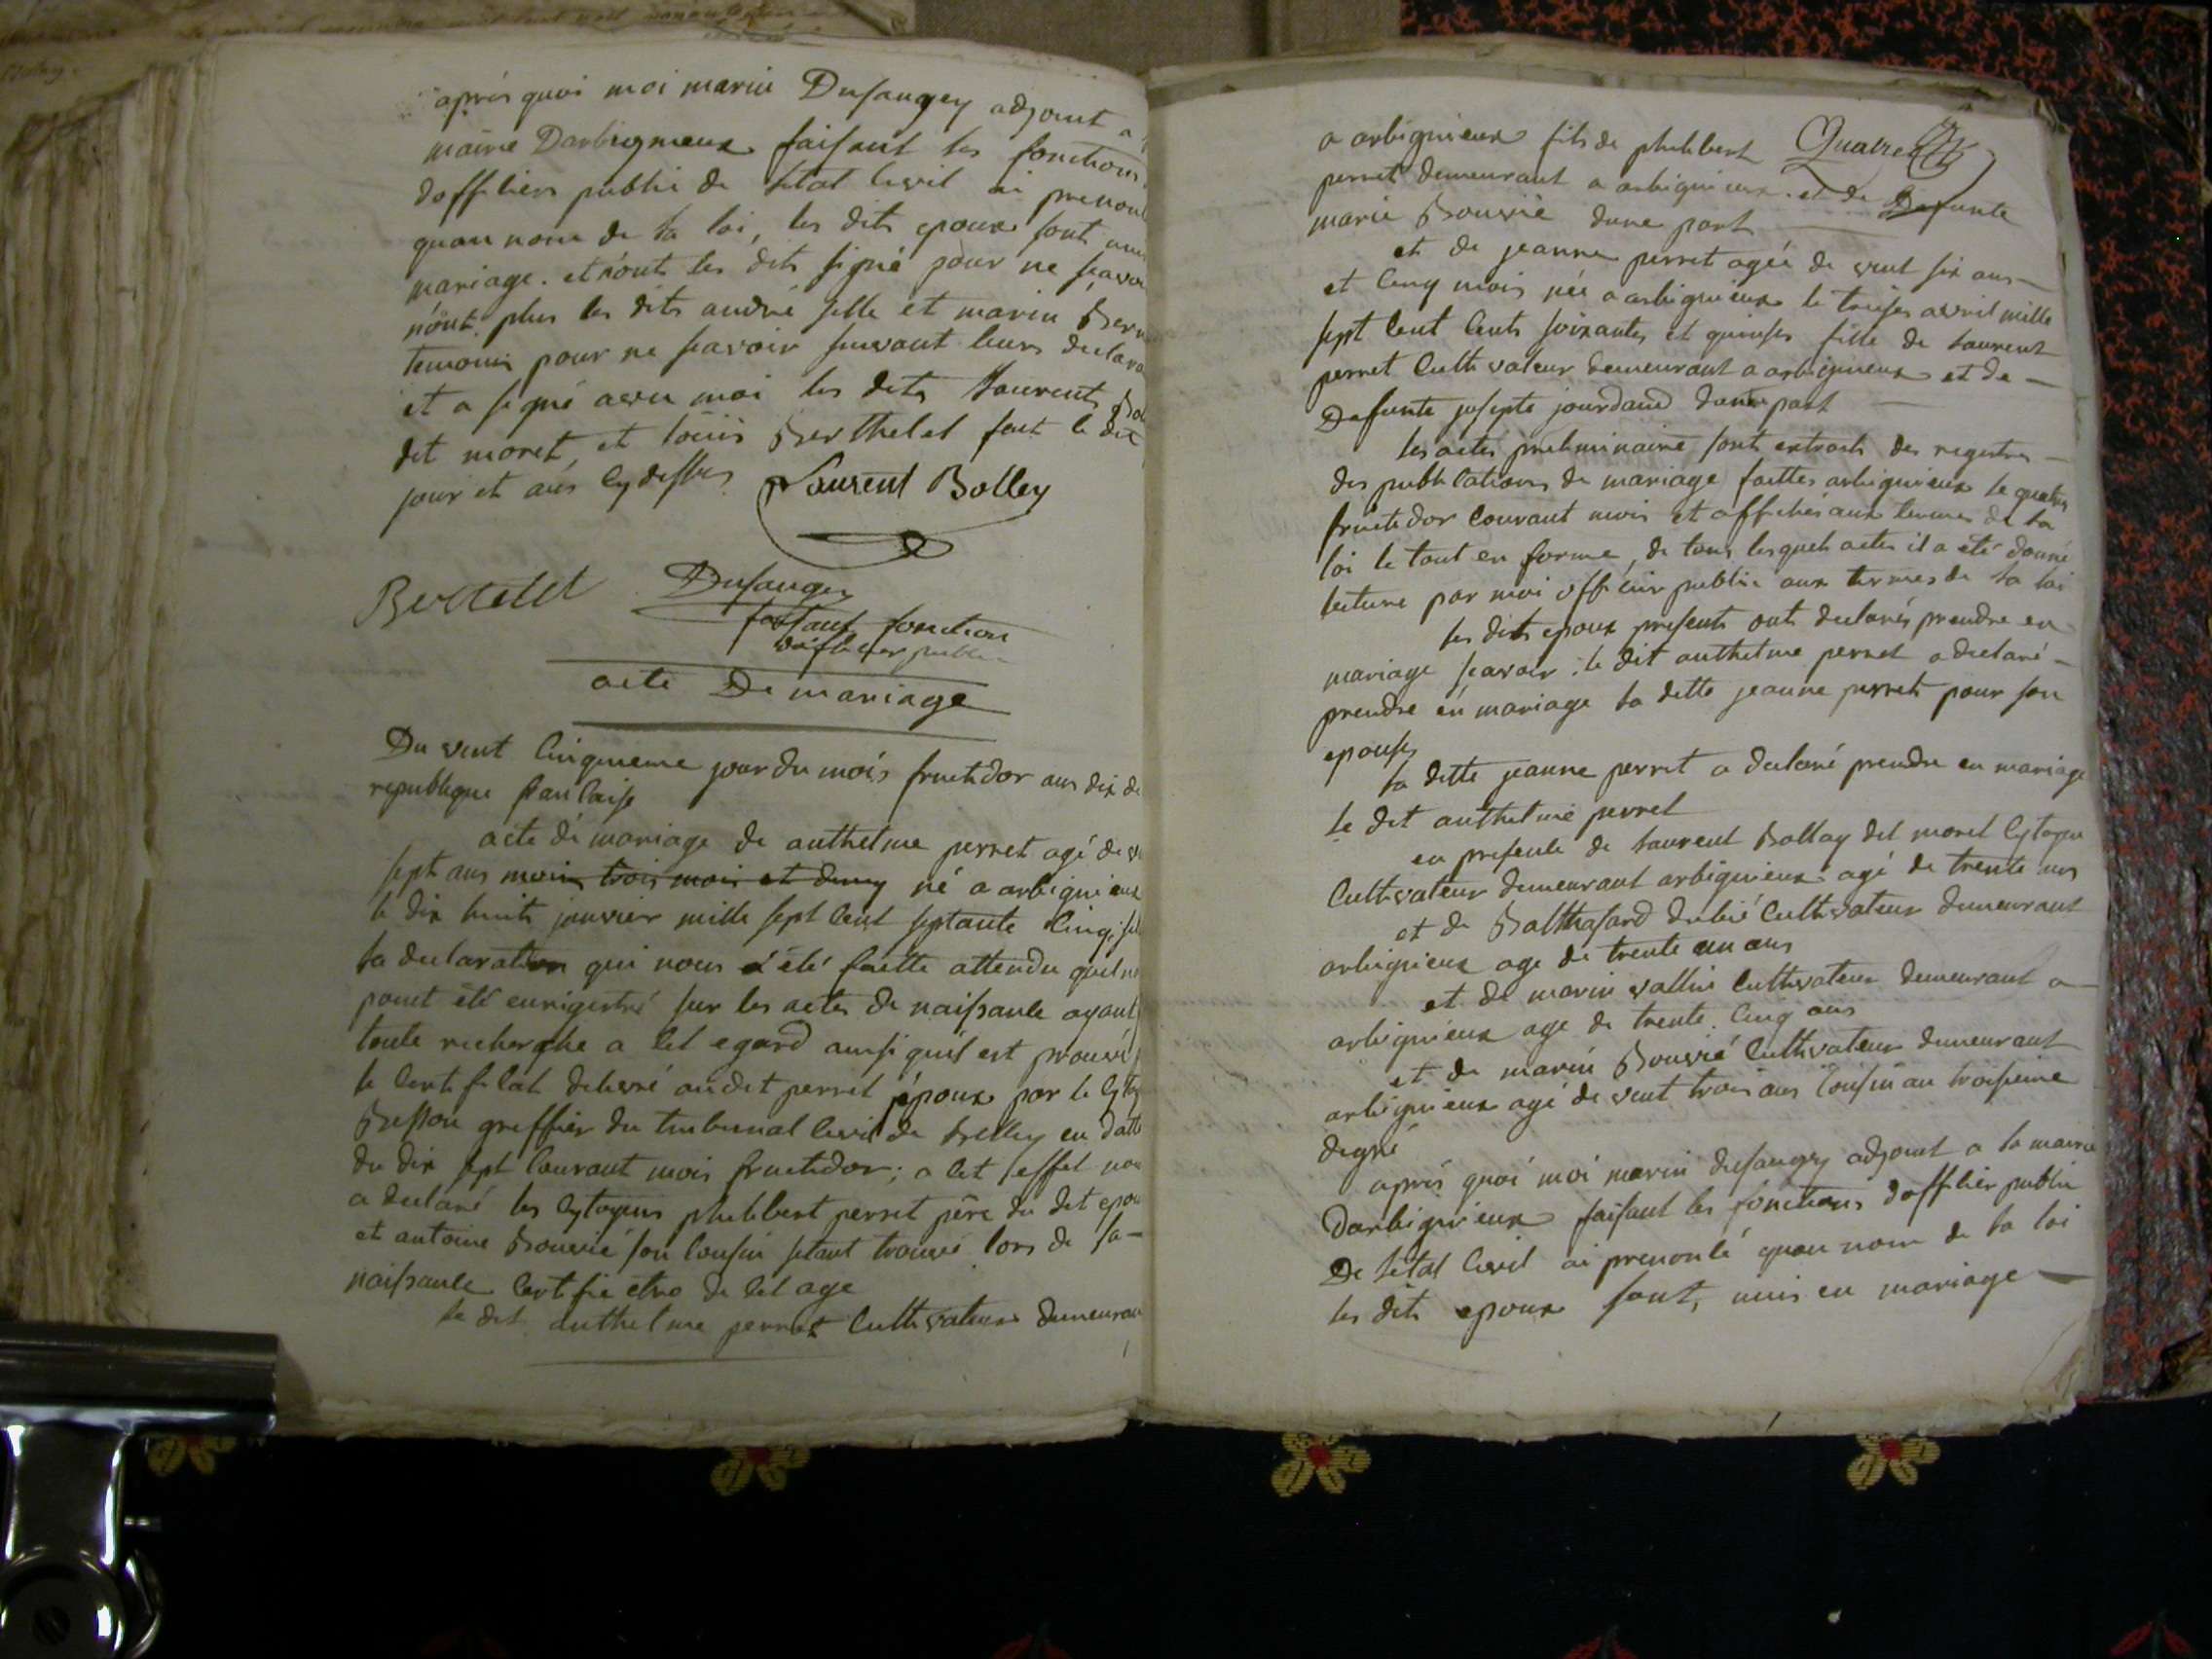 après quoi moi marin Dusaugey adjoint a
mairie Darbignieux faisant les fonctions
dofficiers public de letat civil ai prenon
quau nom de la loi, les dits epoux sont unis
mariage. et nont les dits signé pour ne scavoi
nont plus les dits andré selle et marin Bern
temoins pour ne scavoir suivant leurs declara
et a signé avec moi les dits Laurent Bol
dit moret, et louis Berthelet fait le dit
jour et ans cy dessus Laurent Bolley
Bertelet Dusaugey
faisant fonction
dofficier public
acte De mariage
Du vint cinquieme jour du mois fructidor ans dix de
republique francaise
acte de mariage de anthelme perret agé de vi
sept ans moins trois mois et demy né a arbignieux
le dix huit janvier mille sept cent septante cinq, sel
la declaration qui nous a été faitte attendu quil n
point été enrigistré sur les actes de naissance ayant
toute recherche a cet egard ainsi quil est prouvé
le certificat delivré audit perret époux par le cytoy
Besson greffier du tribunal civil de belley en datte
du dix sept courant mois fructidor; a cet effet nou
a declaré les cytoyens philibert perret père du dit epou
et antoine Bouvié son cousin setant trouvé lors de sa
naissance certifie etre de cet age
le dit anthelme perret cultivateur demeuran
a arbignieux fils de philibert Quatre
perret demeurant a arbignieux. et de Defunte
marie Bouvié dune part
et de jeanne perret agée de vint six ans
et cinq mois née a arbignieux le treises avril mille
sept cent cents soixantes et quinses fille de laurent
perret cultivateur demeurant a arbignieux et de
Defunte josepte jourdand dautre part
les actes preliminaire sont extraits des registres
des publications de mariage faittes arbignieux le quatres
fructidor courant mois et affichés aux termes de la
loi le tout en forme, de tous lesquels actes il a été donné
lecture par moi officier public aux termes de la loi
les dits epoux presents ont declarés prendre en
mariage scavoir: le dit anthelme perret a declaré
prendre en mariage la ditte jeanne perret pour son
epouses
la ditte jeanne perret a declaré prendre en mariage
le dit anthelme perret
en presence de laurent Bollay dit moret cytoyen
cultivateur demeurant arbignieux agé de trente ans
et de Balthasard dubié cultivateur demeurant
arbignieux age de trente un ans
et de marin vallin cultivateur demeurant a
arbignieux age de trente cinq ans
et de marin Bouvié cultivateur demeurant
arbignieux agé de vint trois ans cousin au troisieme
degré
après quoi moi marin dusaugey adjoint a la mairie
Darbignieux faisant les fonctions dofficier public
De letat civil ai prenoncé quau nom de la loi
les dits epoux sont, unis en mariage